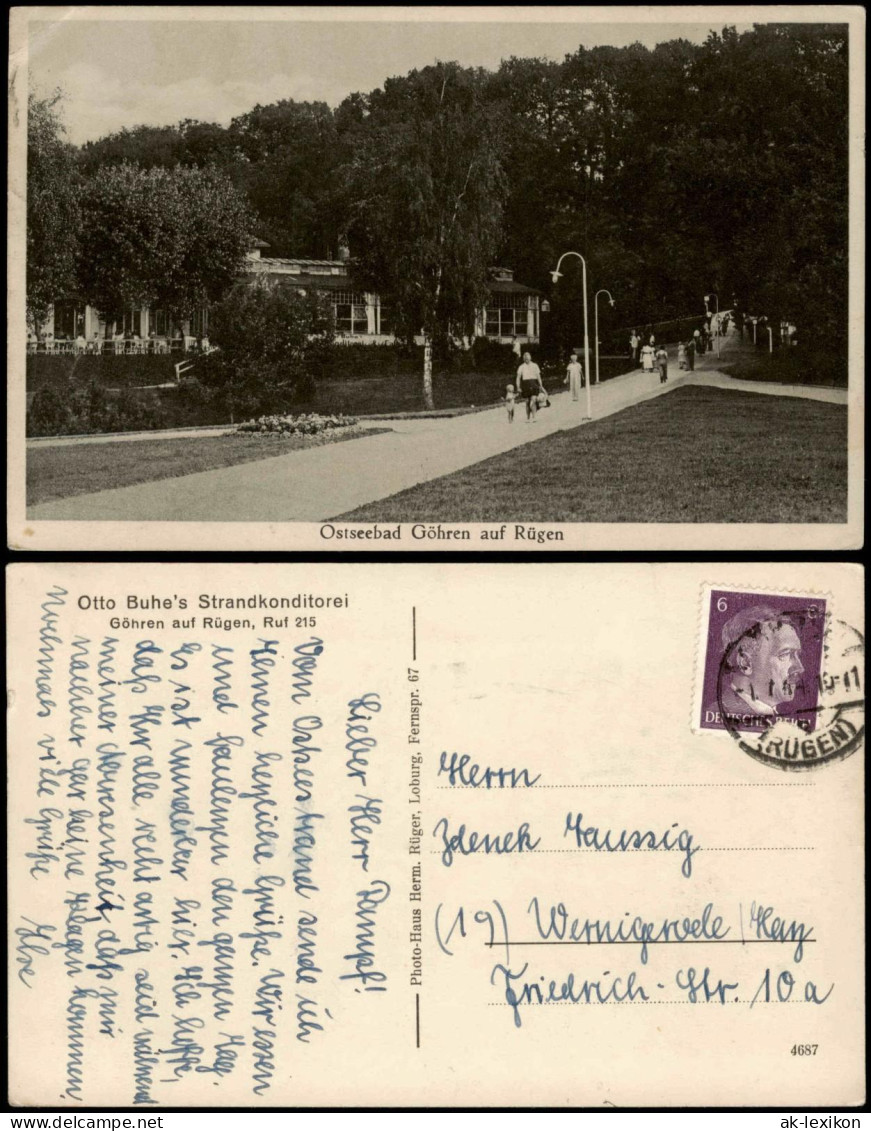 Ostseebad Göhren auf Rügen
Otto Buhe's Strandkonditorei
Göhren auf Rügen, Ruf 215
Lieber Herr Pampf!
Vom Ostseestrand sende ich
Ihnen herzliche Grüße. Wir essen
und faulenzen den ganzen Tag.
Es ist wunderbar hier. Ich hoffe,
daß Ihr alle recht artig seid während
meiner Abwesenheit, daß mir
nachher gar keine Klagen kommen.
Nochmals viele Grüße
Ilse
Photo-Haus Herm. Rüger, Loburg, Fernspr. 67
6 6
DEUTSCHES REICH
(RÜGEN)
Herrn
Zdenek
(19) Wernigerode / Harz
Friedrich-Str. 10a
4687
ak-lexikon